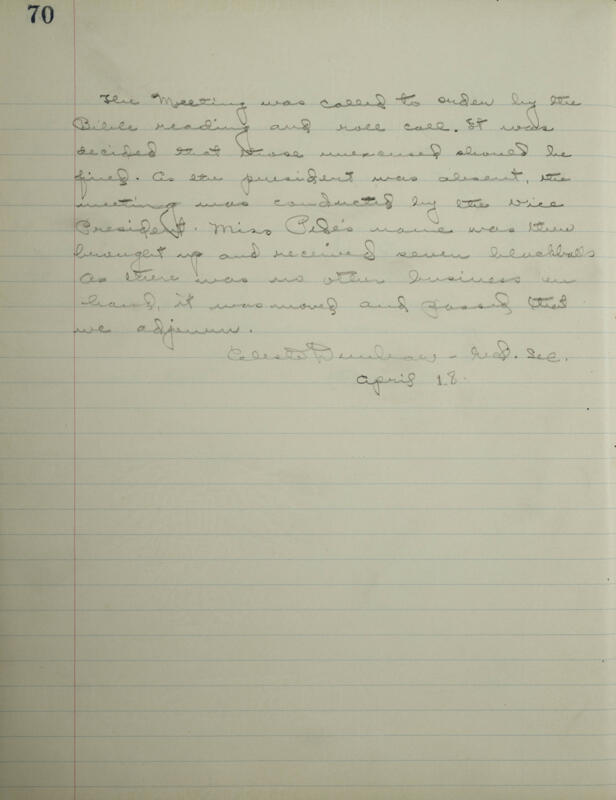 70
The Meeting was called to order by the
Bible reading and roll call. It was
decided that those unexcused should be
fined. As the president was absent, the
meeting was conducted by the Vice
President. Miss name was then
brought up and received seven blackballs
As there was no other business on
hand, it was moved and passed that
we adjourn.
Celeste - Sec.
April 18.